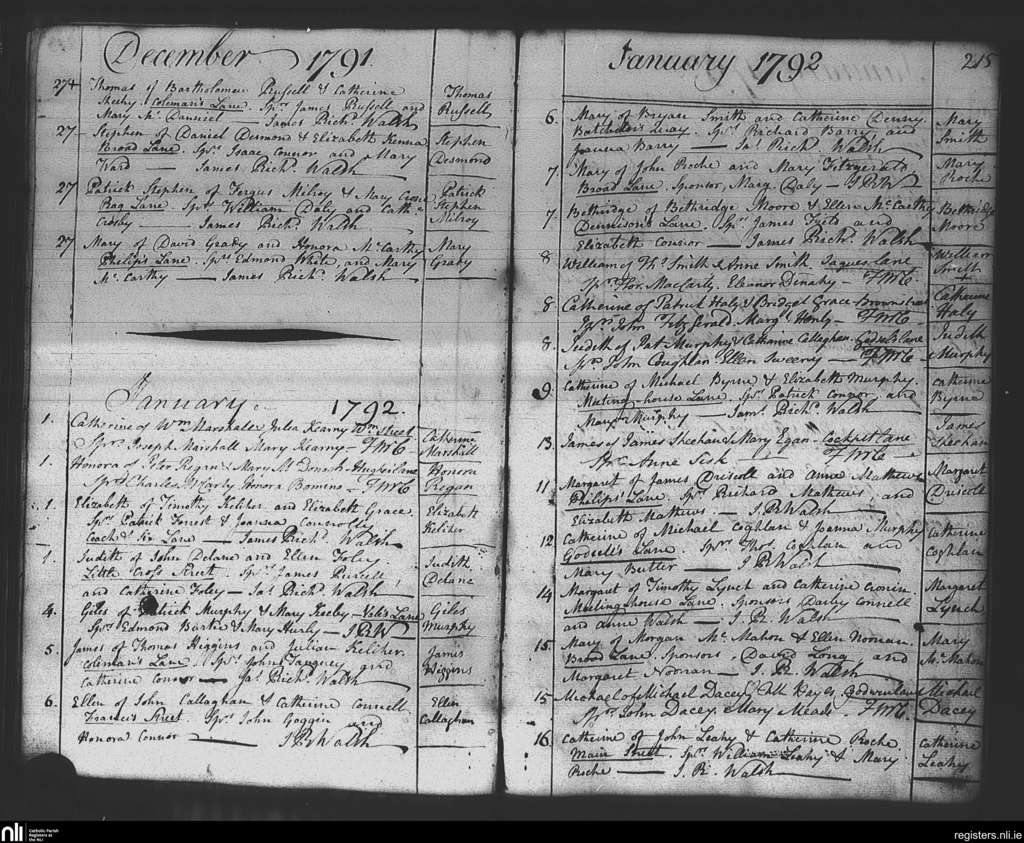 December 1791
274 Thomas of Bartholomew Russell & Catherine
Sheehy. Coleman's Lane. Sprs. James Russell and
Mary Mc. Danniel — James Richd. Walsh
Thomas
Russell
27 Stephen of Daniel Desmond & Elizabeth Kenna
Broad Lane. Sprs. Isaac Connor and Mary
Ward — James Richd. Walsh
Stephen
Desmond
27 Patrick Stephen of Fergus Milroy & Mary
Rag Lane. Sprs. William Daly and Cathe.
Crosby — James Richd. Walsh
Patrick
Stephen
Milroy
27 Mary of David Grady and Honora McCarthy
Philip's Lane. Sprs. Edmond White, and Mary
Mc. Carthy — James Richd. Walsh
Mary
Grady
January 1792.
1. Catherine of Wm. Marshall & Kearny Street
Sprs. Joseph Marshall Mary Kearny — FMcC
Catherine
Marshall
1. Honora of Peter Regan & Mary Mc Donogh
Sprs. Charles McCarty Honora — FMcC
Honora
Regan
1. Elizabeth of Timothy Keliher and Elizabeth Grace
Sprs. Patrick Forrest & Joanna Connolly
Coach & Six Lane — James Richd. Walsh
Elizabeth
Keliher
1. Judith of John Delane and Ellen Foley.
Little Cross Street. Sprs. James Russell,
and Catherine Foley — Jas. Richd. Walsh
Judith
Delane
4. Giles of Patrick Murphy & Mary — Lane
Sprs. Edmond Burke & Mary Hurly — J R W
Giles
Murphy
5. James of Thomas Higgins and Julian Keliher.
Coleman's Lane. Sprs. John and
Catherine Connor — Jas. Richd. Walsh
James
Higgins
6. Ellen of John Callaghan & Catherine Connell
Francis's Street. Sprs. John Goggin and
Honora Connor — J R Walsh
Ellen
Callaghan
January 1792
215
6. Mary of Bryan Smith and Catherine Denny.
Batchellor's Quay. Sprs. Richard Barry, and
Joanna Barry — Jas. Richd. Walsh
Mary
Smith
7. Mary of John Roche and Mary Fitzgerald
Broad Lane. Sponsor, Marg. Daly — J R W
Mary
Roche
7. Bethridge of Bethridge Moore & Ellen McCarthy
Dennison's Lane. Sprs. James and
Elizabeth Connor — James Richd. Walsh
Bethridge
Moore
8 William of Ths. Smith & Anne Smith lane
Sprs. Flor. MacCarty. Eleanor — FMcC
William
Smith
8. Catherine of Patrick Haly & Bridget Grace Brown street
Sprs. John Fitzgerald Margt. — FMcC
Catherine
Haly
8. Judith of Pat. Murphy & Catharine Callaghan. lane
Sprs. John Coughlan Ellen Sweeny — FMcC
Judith
Murphy
9. Catherine of Michael Byrne & Elizabeth Murphy.
Meeting-house Lane. Sprs. Patrick Connor, and
Mary Murphy — Jams. Richd. Walsh
Catherine
Byrne
13. James of James Sheehan & Mary Egan. Cockpit lane
Spr. Anne — FMcC
James
Sheehan
11. Margaret of James Driscoll and Anne Mathews
Philips' Lane. Sprs. Richard Mathews and
Elizabeth Mathews — J. R Walsh
Margaret
Driscoll
12. Catherine of Michael Coghlan & Joanna Murphy
Lane. Sprs. Thos. Coghlan and
Mary Butler — J R Walsh
Catherine
Coghlan
14 Margaret of Timothy Lynch and Catherine Cronin.
Meeting house Lane. Sponsors Darby Connell
and Anne Walsh — J. R. Walsh
Margaret
Lynch
15. Mary of Morgan Mc. Mahon & Ellen Noonan
Broad Lane. Sponsors, David Long and
Margaret Noonan — J. R. Walsh
Mary
Mc. Mahon
15 Michael of Michael Dacey & Keyes,
Sprs. John Dacey & Mary Meade. FMcC.
Michael
Dacey
16. Catherine of John Leahy & Catherine Roche
Main Street. Sprs. William Leahy & Mary
Roche — J. R. Walsh
Catherine
Leahy
nli
Catholic Parish
Registers at
the NLI
registers.nli.ie